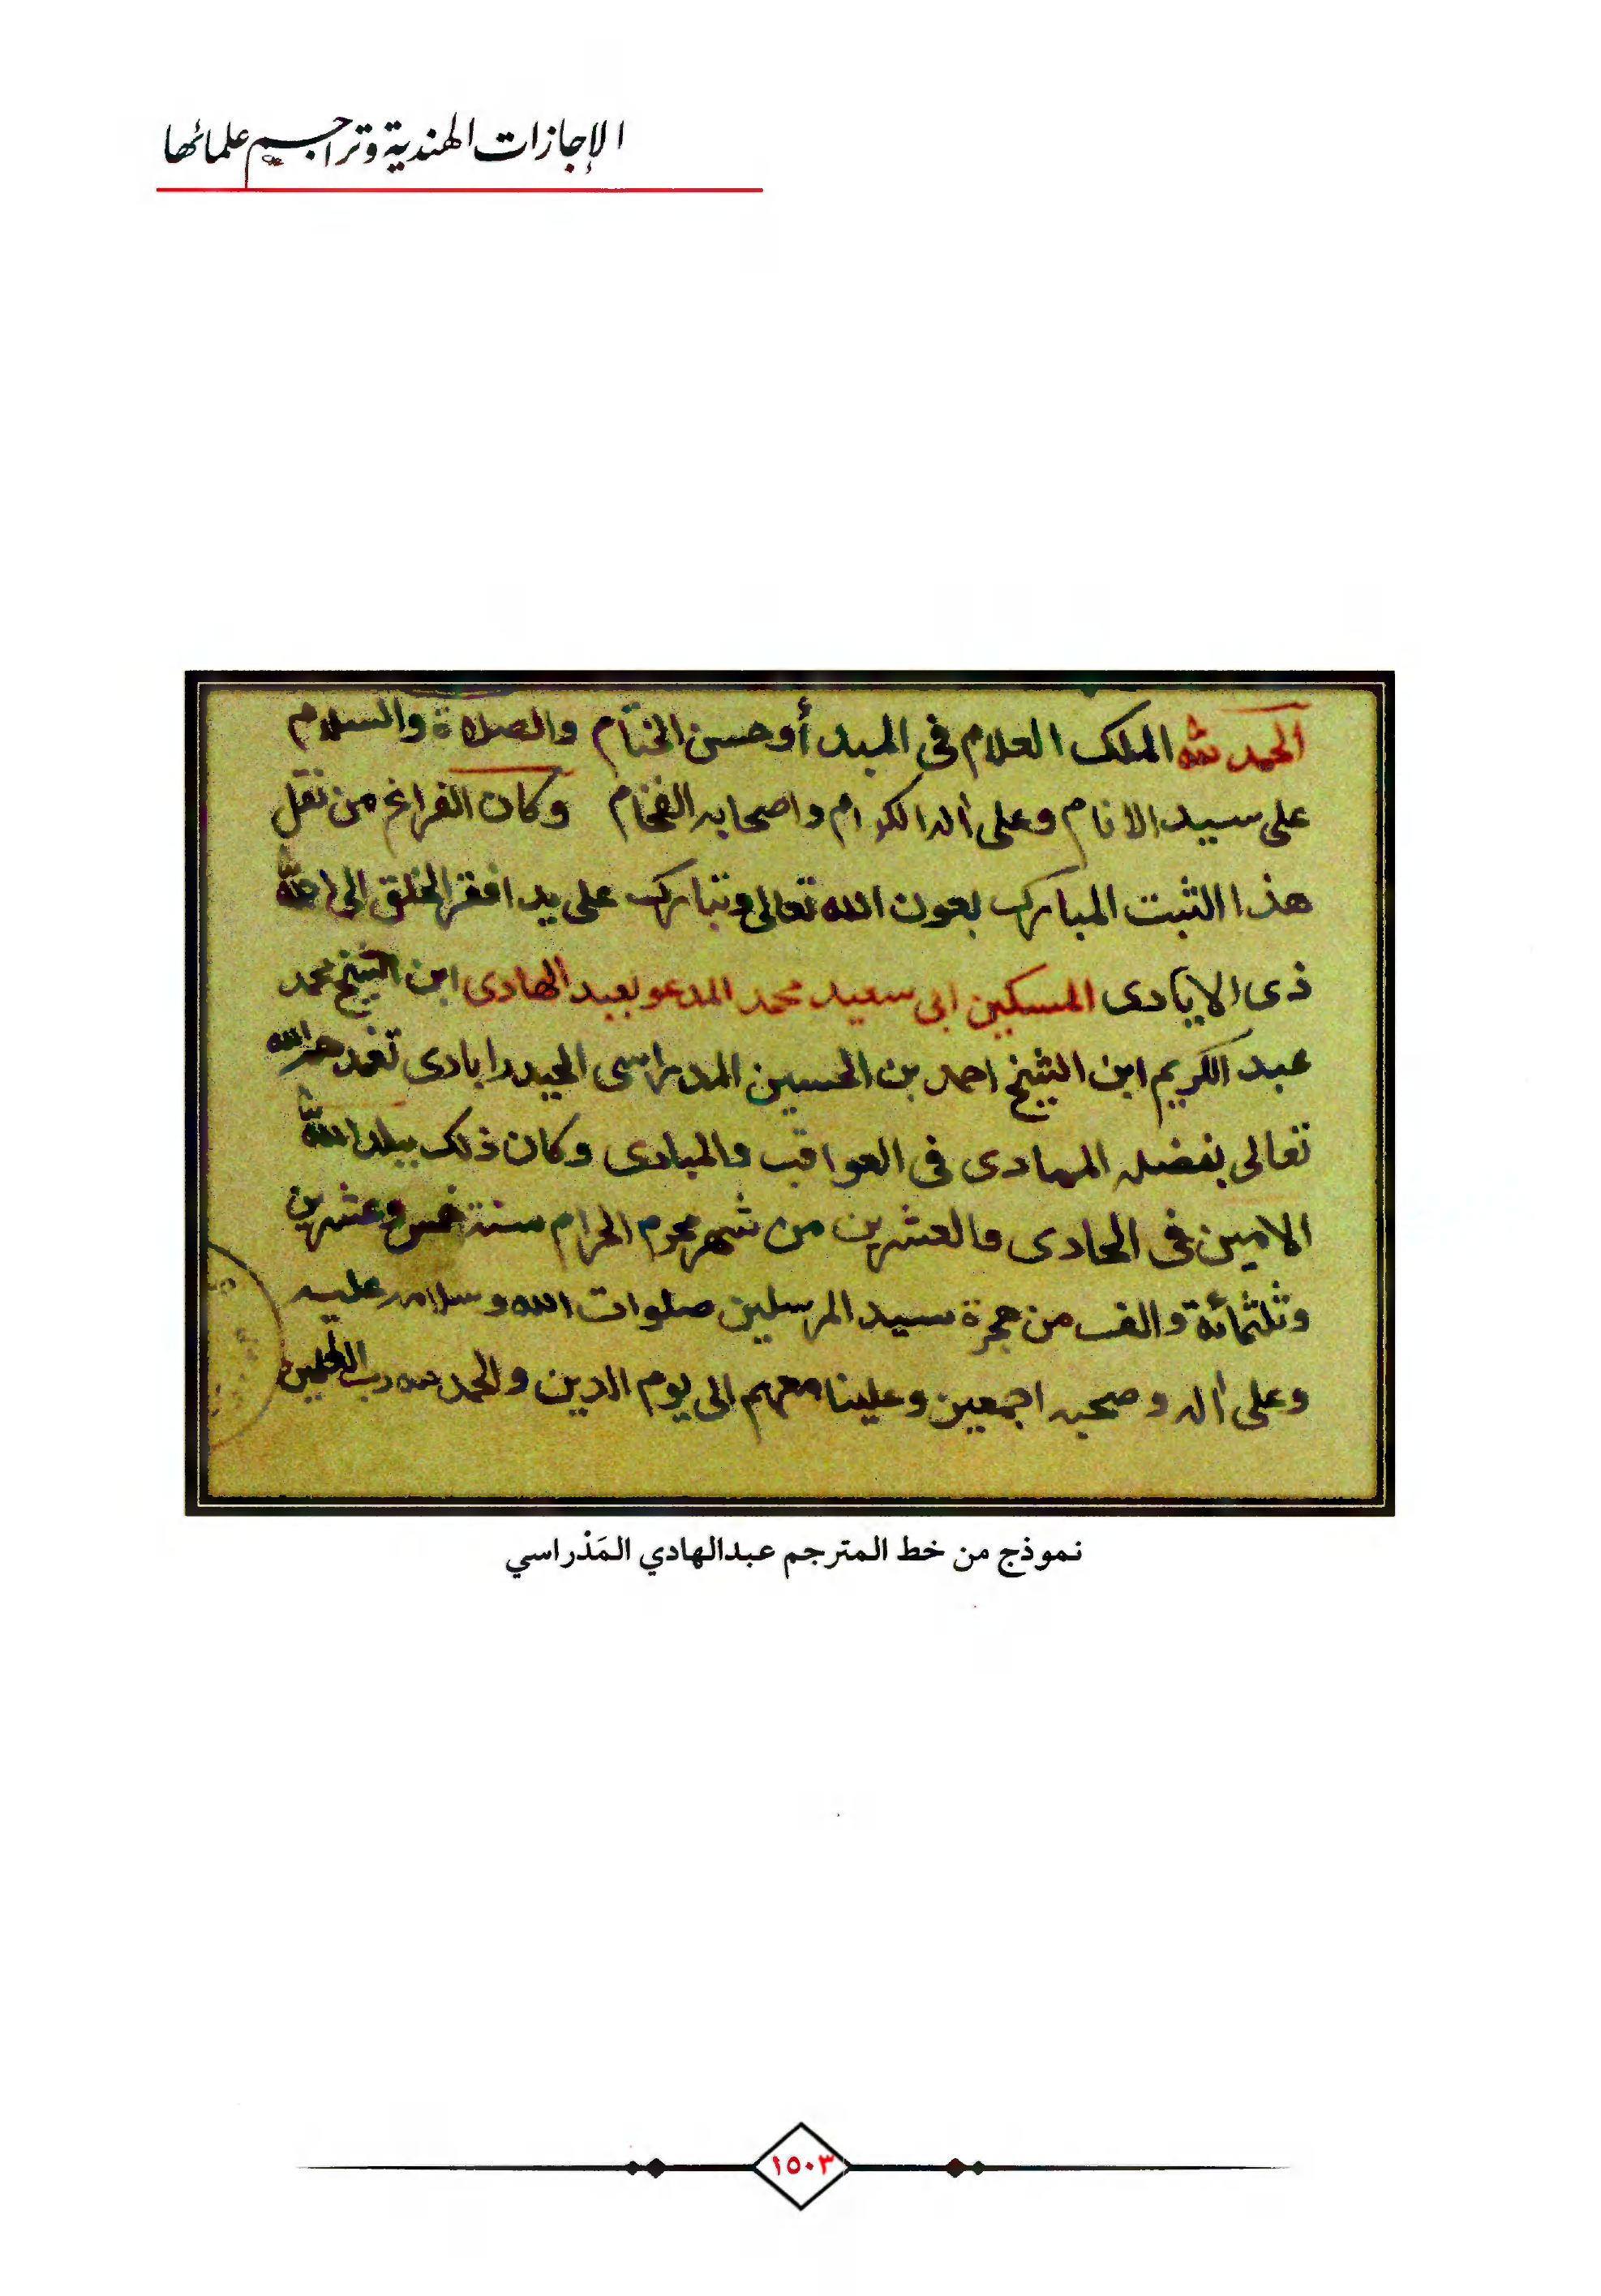 الإجازات الهندية وتراجم علمائها
الحمد لله الملك العلام فى المبدأ وحسن الختام والصلاة والسلام
على سيد الانام وعلى اله الكرام واصحابه الفخام وكان الفراغ من نقل
هذا الثبت المبارك بعون الله تعالى وتبارك على يد افقر الخلق الى الله
ذى الايادى المسكين ابى سعيد محمد المدعو بعبد الهادى ابن الشيخ محمد
عبد الكريم ابن الشيخ احمد بن الحسين المدراسى الحيدرابادى تغمدهم الله
تعالى بفضله فى العواقب والمبادى وكان ذلك ببلد الله
الامين فى الحادى والعشرين من شهر محرم الحرام سنة خمس وعشرين
وثلثمائة والف من هجرة سيد المرسلين صلوات الله وسلامه عليه
وعلى اله وصحبه اجمعين وعلينا معهم الى يوم الدين والحمد لله رب العلمين
نموذج من خط المترجم عبدالهادي المَدْراسي
١٥٠٣